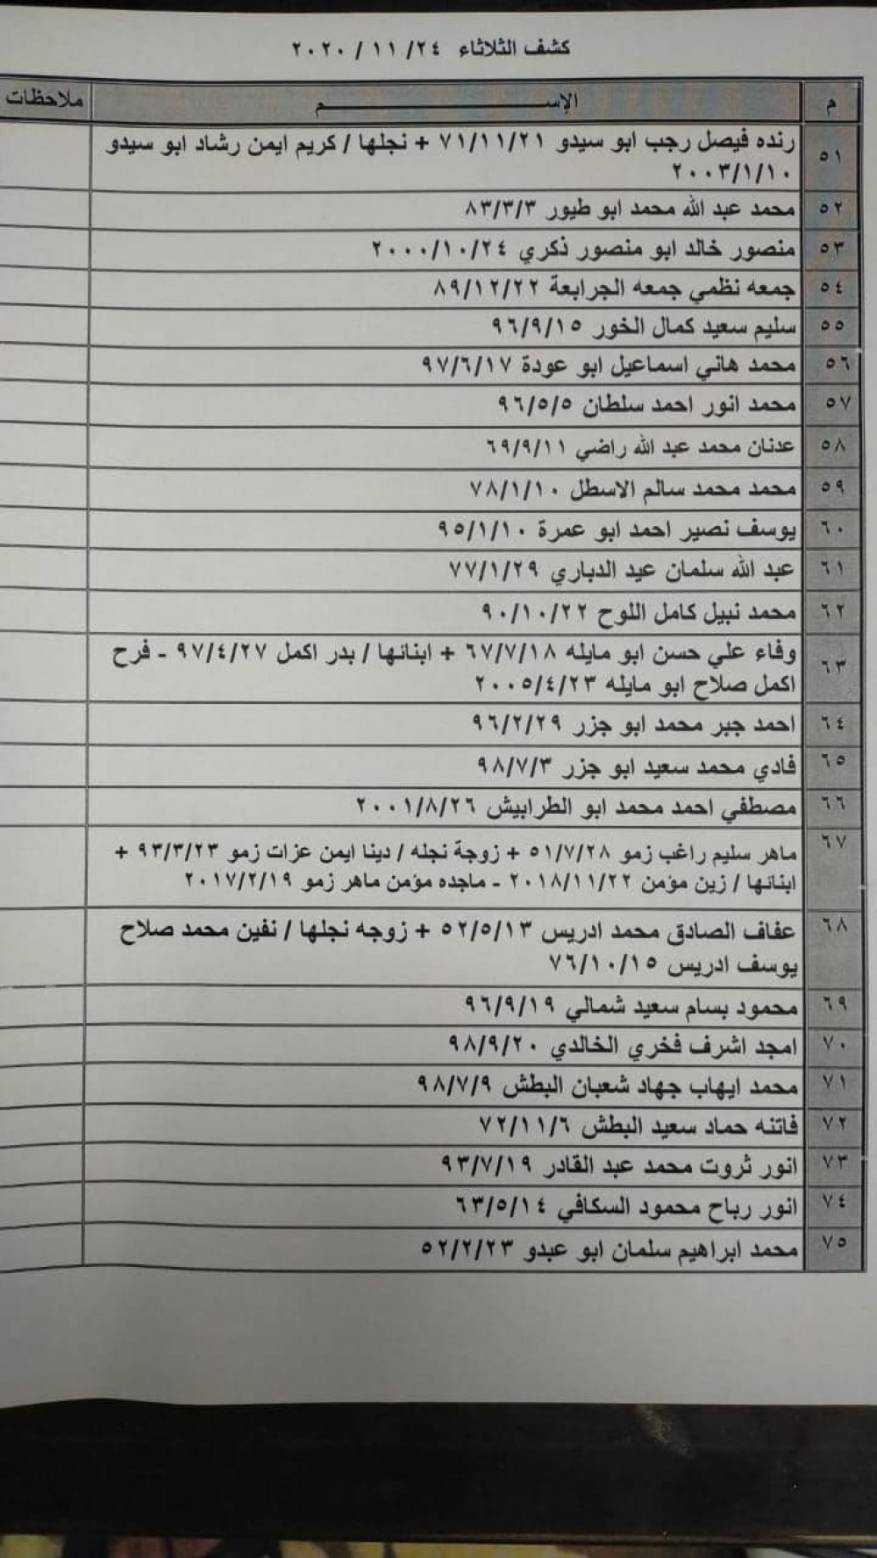 كشف الثلاثاء ٢٤/ ١١ / ٢٠٢٠
م الإســـــــــم ملاحظات
٥١ رنده فيصل رجب ابو سيدو ٧١/١١/٢١ + نجلها / كريم ايمن رشاد ابو سيدو
٢٠٠٣/١/١٠
٥٢ محمد عبد الله محمد ابو طيور ٨٣/٣/٣
٥٣ منصور خالد ابو منصور ذكري ٢٠٠٠/١٠/٢٤
٥٤ جمعه نظمي جمعه الجرابعة ٨٩/١٢/٢٢
٥٥ سليم سعيد كمال الخور ٩٦/٩/١٥
٥٦ محمد هاني اسماعيل ابو عودة ٩٧/٦/١٧
٥٧ محمد انور احمد سلطان ٩٦/٥/٥
٥٨ عدنان محمد عبد الله راضي ٦٩/٩/١١
٥٩ محمد محمد سالم الاسطل ٧٨/١/١٠
٦٠ يوسف نصير احمد ابو عمرة ٩٥/١/١٠
٦١ عبد الله سلمان عيد الدباري ٧٧/١/٢٩
٦٢ محمد نبيل كامل اللوح ٩٠/١٠/٢٢
٦٣ وفاء علي حسن ابو مايله ٦٧/٧/١٨ + ابنائها / بدر اكمل ٩٧/٤/٢٧ - فرح
اكمل صلاح ابو مايله ٢٠٠٥/٤/٢٣
٦٤ احمد جبر محمد ابو جزر ٩٦/٢/٢٩
٦٥ فادي محمد سعيد ابو جزر ٩٨/٧/٣
٦٦ مصطفي احمد محمد ابو الطرابيش ٢٠٠١/٨/٢٦
٦٧ ماهر سليم راغب زمو ٥١/٧/٢٨ + زوجة نجله / دينا ايمن عزات زمو ٩٣/٣/٢٣ +
ابنائها / زين مؤمن ٢٠١٨/١١/٢٢ - ماجده مؤمن ماهر زمو ٢٠١٧/٢/١٩
٦٨ عفاف الصادق محمد ادريس ٥٢/٥/١٣ + زوجه نجلها / نفين محمد صلاح
يوسف ادريس ٧٦/١٠/١٥
٦٩ محمود بسام سعيد شمالي ٩٦/٩/١٩
٧٠ امجد اشرف فخري الخالدي ٩٨/٩/٢٠
٧١ محمد ايهاب جهاد شعبان البطش ٩٨/٧/٩
٧٢ فاتنه حماد سعيد البطش ٧٢/١١/٦
٧٣ انور ثروت محمد عبد القادر ٩٣/٧/١٩
٧٤ انور رباح محمود السكافي ٦٣/٥/١٤
٧٥ محمد ابراهيم سلمان ابو عبدو ٥٢/٢/٢٣